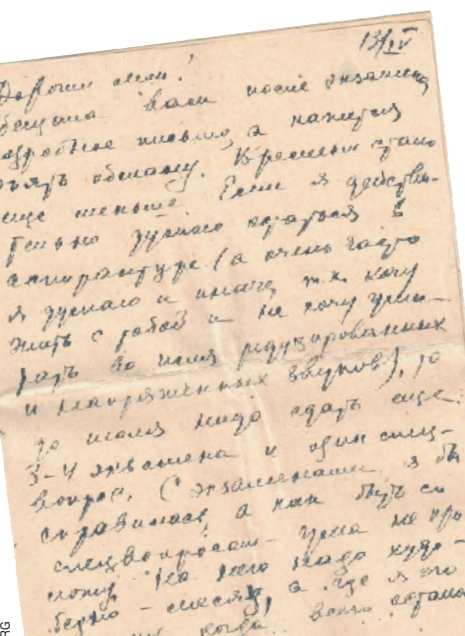 13/IV
Дорогий мой!
обещала вам после экзамена
подробное письмо, а кажется
опять обману. Времени стало
еще меньше. Если я действи-
тельно думаю остаться в
аспирантуре (а очень часто
я думаю и иначе, т.к. хочу
жить с тобой и не хочу уми-
рать во имя редуцированных
и напряженных звуков), то
до июля надо сдать еще
3-4 экзамена и один спец-
вопрос. С экзаменами я бы
справилась, а как быть со
спецвопросом - ума не при
ложу. На него надо худо-
бедно - месяц, а где я его
когда всего осталось
RG